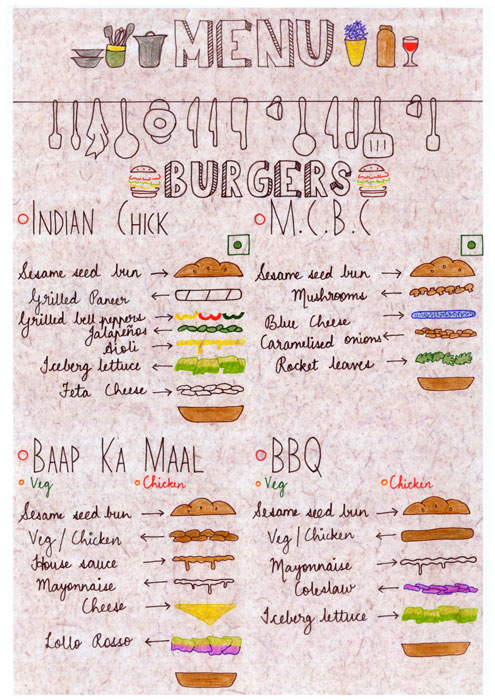 MENU
BURGERS
INDIAN CHICK
Sesame seed bun
Grilled Paneer
Grilled bell peppers
Jalapeños
Aioli
Iceberg lettuce
Feta Cheese
M.C.B.C
Sesame seed bun
Mushrooms
Blue Cheese
Caramelised onions
Rocket leaves
BAAP KA MAAL
Veg
Chicken
Sesame seed bun
Veg / Chicken
House sauce
Mayonnaise
Cheese
Lollo Rosso
BBQ
Veg
Chicken
Sesame seed bun
Veg / Chicken
Mayonnaise
Coleslaw
Iceberg lettuce